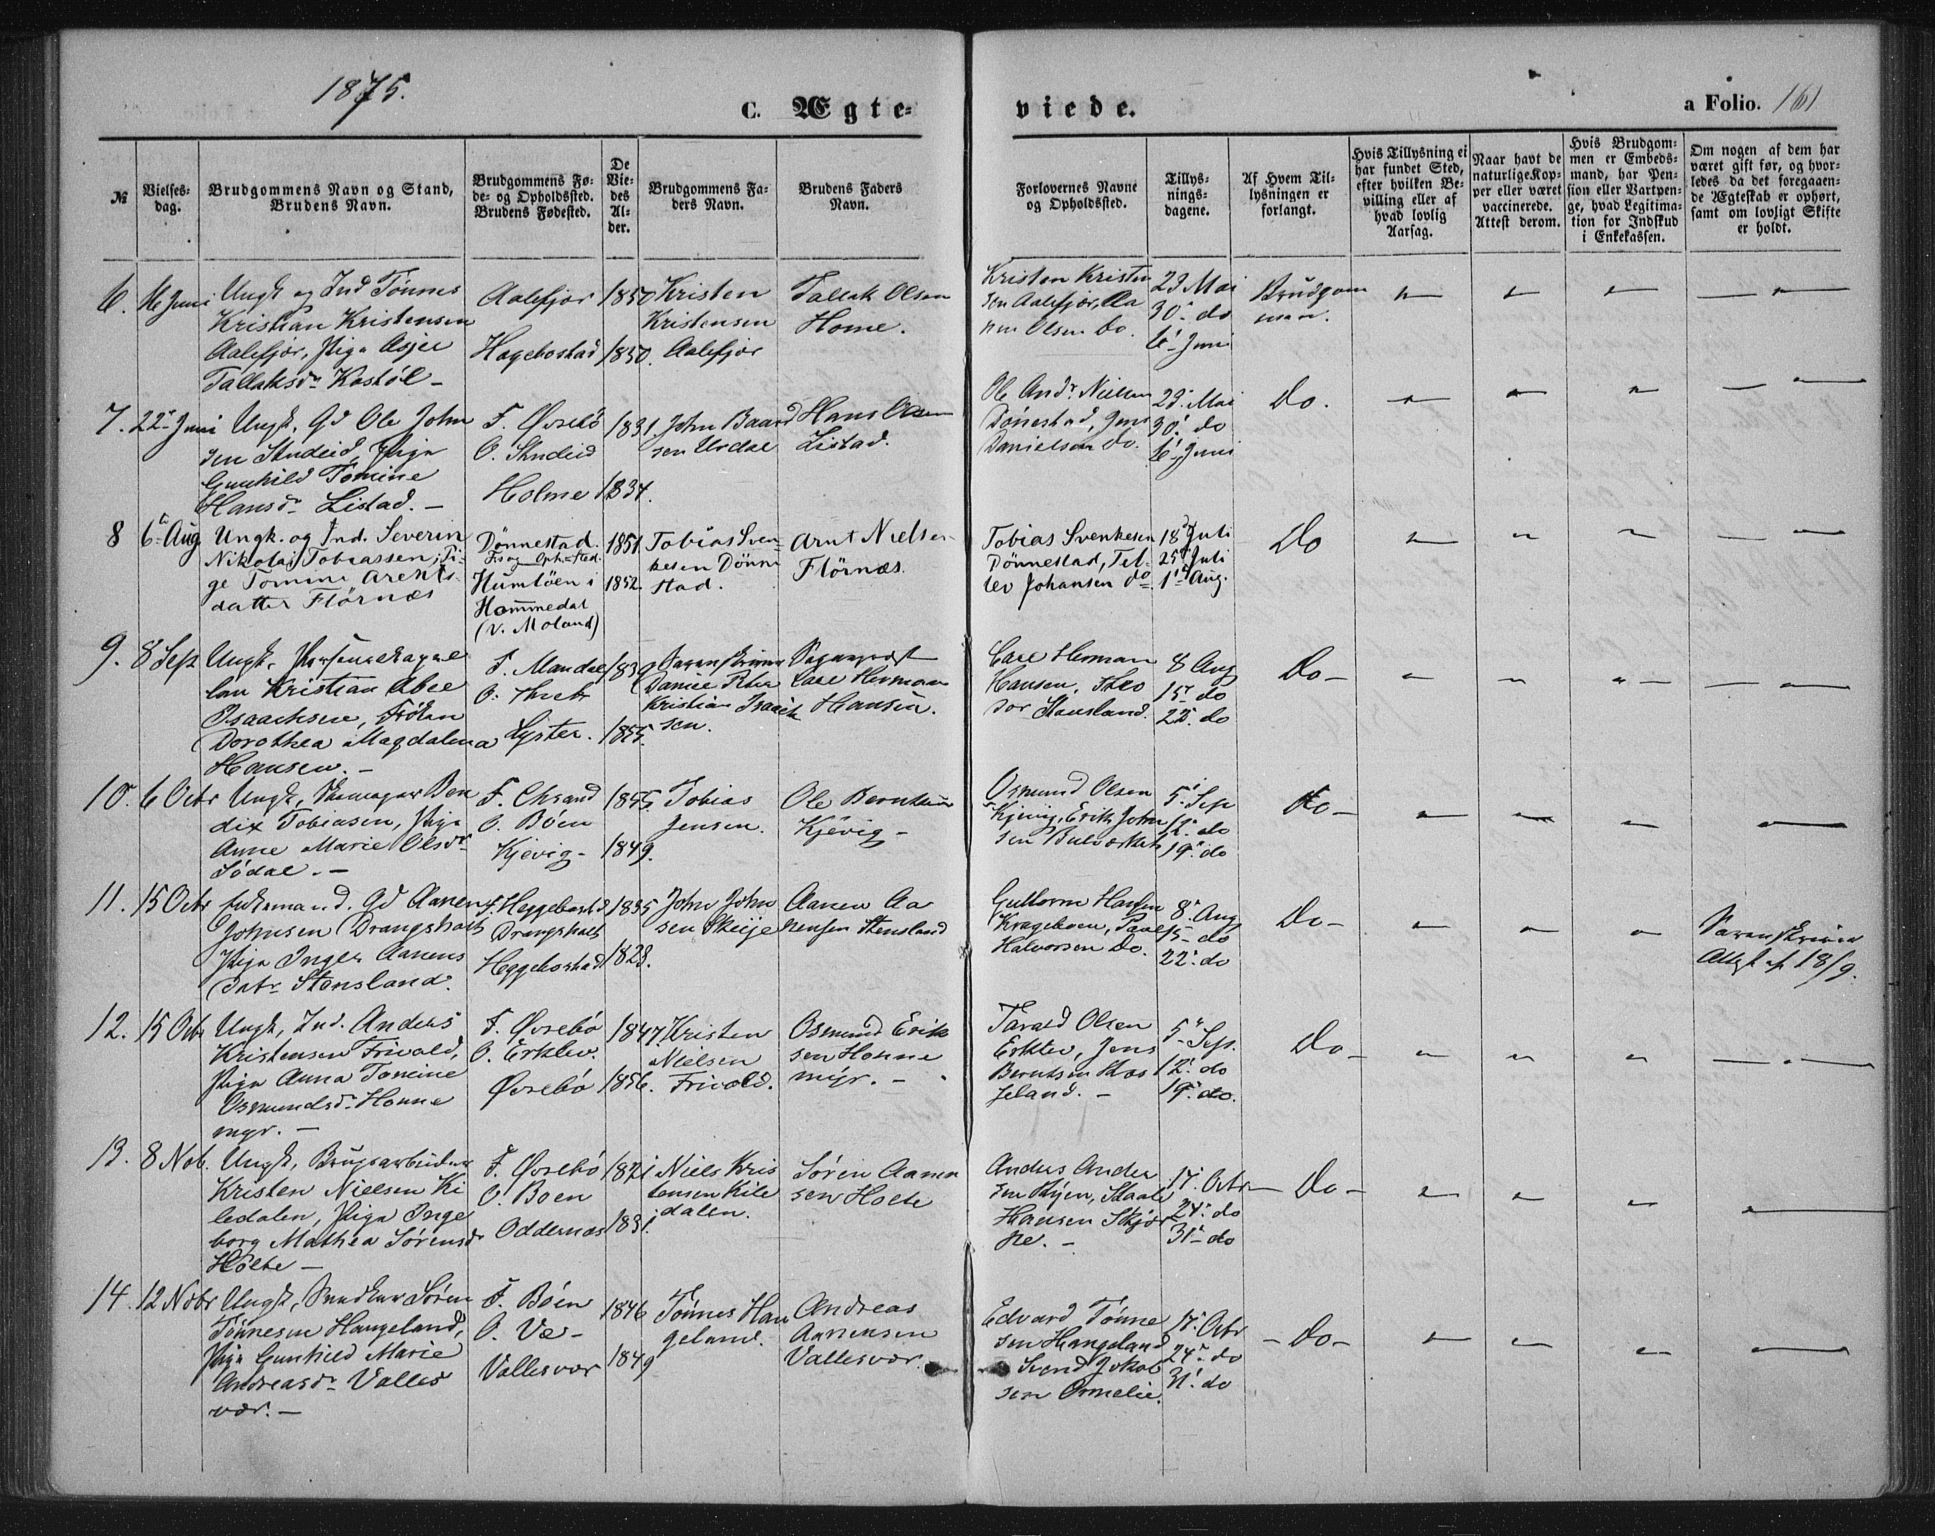 1875.
C. Ægte-
viede.
a Folio. 161
№
Vielses-
dag.
Brudgommens Navn og Stand,
Brudens Navn.
Brudgommens Fø-
de- og Opholdssted.
Brudens Fødested.
De
Vie-
des
Al-
der.
Brudgommens Fa-
ders Navn.
Brudens Faders
Navn.
Forlovernes Navne
og Opholdssted.
Tillys-
nings-
dagene.
Af Hvem Til-
lysningen er
forlangt.
Hvis Tillysning ei
har fundet Sted,
efter hvilken Be-
villing eller af
hvad lovlig
Aarsag.
Naar havt de
naturlige Kop-
per eller været
vaccinerede.
Attest derom.
Hvis Brudgom-
men er Embeds-
mand, har Pen-
sion eller Vartpen-
ge, hvad Legitima-
tion for Indskud
i Enkekassen.
Om nogen af dem har
været gift før, og hvor-
ledes da det foregaaen-
de Ægteskab er ophørt,
samt om lovligt Skifte
er holdt.
6. 16 Juni
Ungk. og Ind Tønnes
Kristian Kristensen
Aalefjær, Pige Asjer
Tallaksdr Kostøl –
Aalefjær
Hægebostad
1850
1850.
Kristen
Kristensen
Aalefjær
Tallak Olsen
Home.
Kristen Kristen
sen Aalefjær, Aa
nen Olsen do.
23 Mai
30. do
6 Juni
Brudgom
men.
7. 22 Juni
Ungk, Gd Ole John
sen Studeid, Pige
Gunhild Tomine
Hansdr Listad. –
F. Øvrebø
O. Studeid
Holme
1831.
1834.
John Baard
sen Urdal
Hans Olsen
Listad.
Ole Andr. Nielsen
Dønnestad, Jens
Danielsen do.
23. Mai
30. do
6 Juni
Do.
8 6 Aug
Ungk. og Ind. Severin
Nikolai Tobiassen, Pi-
ge Tomine Arents-
datter Flørnæs
Dønnestad.
F. og Oph.-Sted.
Humlöen i
Hommedal
(v. Moland)
1851.
1852.
Tobias Sven-
kesen Dönne
stad.
Arnt Nielsen
Flörnæs.
Tobias Svenkesen
Dønnestad, Tel-
lev Johansen do
18 Juli
25 Juli
1 Aug.
Do
9. 8 Sep
Ungk,
lan Kristian Abel
Isaachsen, Frøken
Dorothea Magdalena
Hansen. –
F. Mandal
O.
Lyster.
1855.
Sorenskriver
Daniel Peter
Kristian Isaach
sen.
Sogneprest
Carl Herman
Hansen.
Carl Herman
Hansen,
Stausland.
8 Aug
15. do
22. do
Do –
10. 6 Octr
Ungk, Skomager Ben
dix Tobiasen, Pige
Anne Marie Olsdr
Sødal. –
F. Chrsand
O. Böen
Kjevig –
1849.
Tobias
Jensen.
Ole Berntsen
Kjevig –
Osmund Olsen
Kjevig, Erik John
sen
5. Sep
12. do
19. do
Do –
11. 15 Octr
Enkemand. Gd Aanen
Johnsen Drangsholt
Pige Inger Aanens
datr Stensland.
F. Heggebostd
Drangsholt
Heggebostad
1835
1828.
John John
sen Skeije
Aanen Aa
nensen Stensland
Guttorm Hansen
Krageboen, Paal
Halvorsen do.
8. Aug
15 – do
22. do
Do –
Sorenskriver
Attest af 18/9.
12. 15 Octr
Ungk, Ind. Anders
Kristensen Frivold,
Pige Anna Tomine
Osmundsdr Honne
myr. –
F. Øvrebø
O. Erklev.
Øvrebø
1847.
1856.
Kristen
Nielsen
Frivold.
Osmund Erik
sen Honne
myr. –
Tarald Olsen
Erklev, Jens
Berntsen Ros
seland. –
5. Sep.
12. do
19. do.
Do –
13. 8 Nob.
Ungk, Brugsarbeider
Kristen Nielsen Ki
ledalen, Pige Inge
borg Mathea Sørensdr
Hölte –
F. Øvrebø
O. Boen
Oddernæs
Niels Kris
tensen Kile
dalen.
Søren Aanen
sen Holte
Anders Ander
sen Ryen, Staale
Hansen Skjør
he. –
17. Octr
24. do
31 – do
Do –
14. 12 Nobr
Ungk, Snedker Søren
Tønnesen Haugeland,
Pige Gunhild Marie
Andreasdr Valles
vær. –
F. Böen
O. Ve –
Vallesvær
1846
1849
Tönnes Hau
geland.
Andreas
Aanensen
Vallesvær.
Edvard Tønne
sen Haugeland
Svend Jakob
sen Ormelie.
17. Octr
24. do
31. do
– Do –